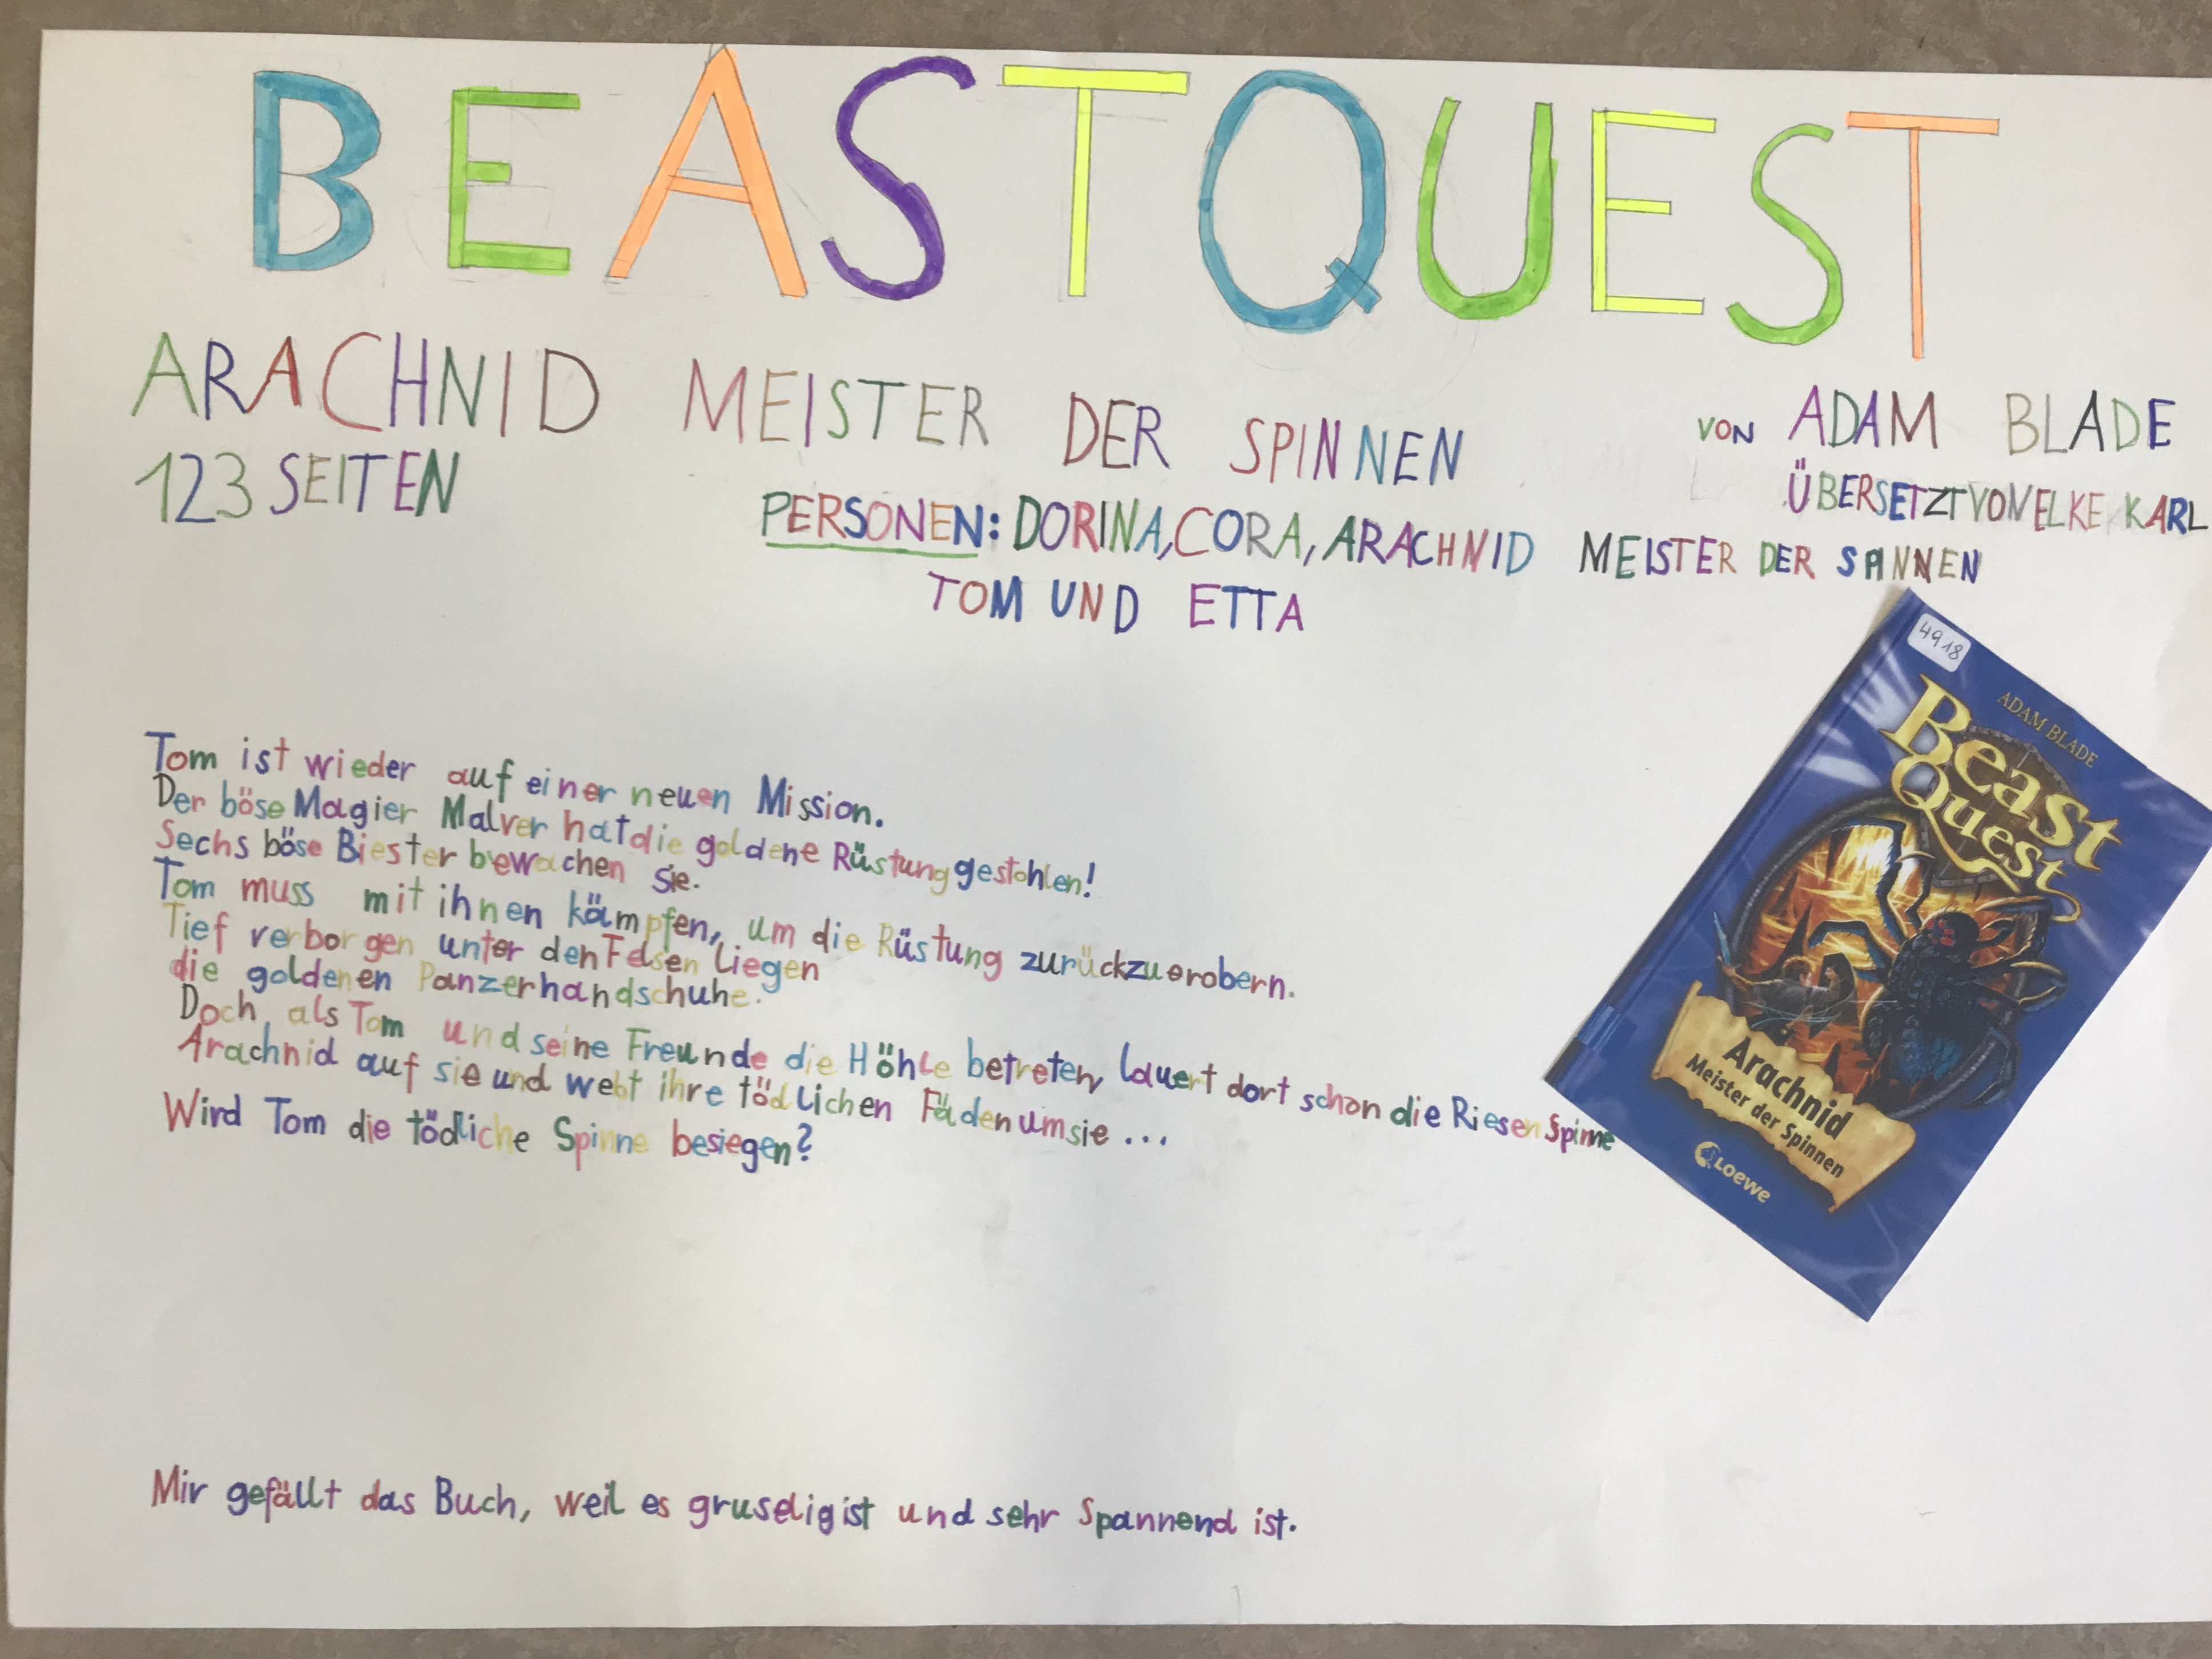 BEASTQUEST
ARACHNID MEISTER DER SPINNEN
VON ADAM BLADE
123 SEITEN
ÜBERSETZT VON ELKE KARL
PERSONEN: DORINA, CORA, ARACHNID MEISTER DER SPINNEN
TOM UND ETTA
Tom ist wieder auf einer neuen Mission.
Der böse Magier Malver hat die goldene Rüstung gestohlen!
Sechs böse Biester bewachen sie.
Tom muss mit ihnen kämpfen, um die Rüstung zurückzuerobern.
Tief verborgen unter den Felsen liegen
die goldenen Panzerhandschuhe.
Doch als Tom und seine Freunde die Höhle betreten, lauert dort schon die Riesen Spinne
Arachnid auf sie und webt ihre tödlichen Fäden um sie ...
Wird Tom die tödliche Spinne besiegen?
Mir gefällt das Buch, weil es gruselig ist und sehr Spannend ist.
4918
ADAM BLADE
Beast
Quest
Arachnid
Meister der Spinnen
Loewe